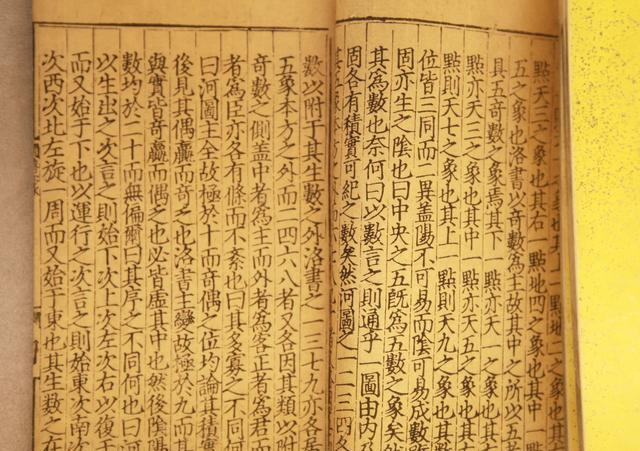 點天三之象也其右一點地四之象也其中一點
五之象也洛書以奇數爲主故其中之所以五者
具五奇數之象焉其下一點亦天一之象也其
點亦天三之象也其中一點亦天五之象也其
點則天七之象也其上一點則天九之象也其
位皆三同而二異蓋陽不可易而陰可易成數
固亦生之陰也曰中央之五旣爲五數之象矣然
其爲數也奈何曰以數言之則通乎一圖由內及
固各有積實可紀之數矣然河圖之一二三四各
數以附于其生數之外洛書之一三七九亦各居
五象本方之外而二四六八者又各因其類以附
奇數之側蓋中者爲主而外者爲客正者爲君而
者爲臣亦各有條而不紊也曰其多寡之不同何
曰河圖主全故極於十而奇偶之位均論其積實
後見其偶贏而奇乏也洛書主變故極於九而其
與實皆奇贏而偶乏也必皆虛其中也然後陰陽
數均於二十而無偏爾曰其序之不同何也曰河
以生出之次言之則始下次上次左次右以復于
而又始于下也以運行之次言之則始東次南次
次西次北左旋一周而又始于東也其生數之在